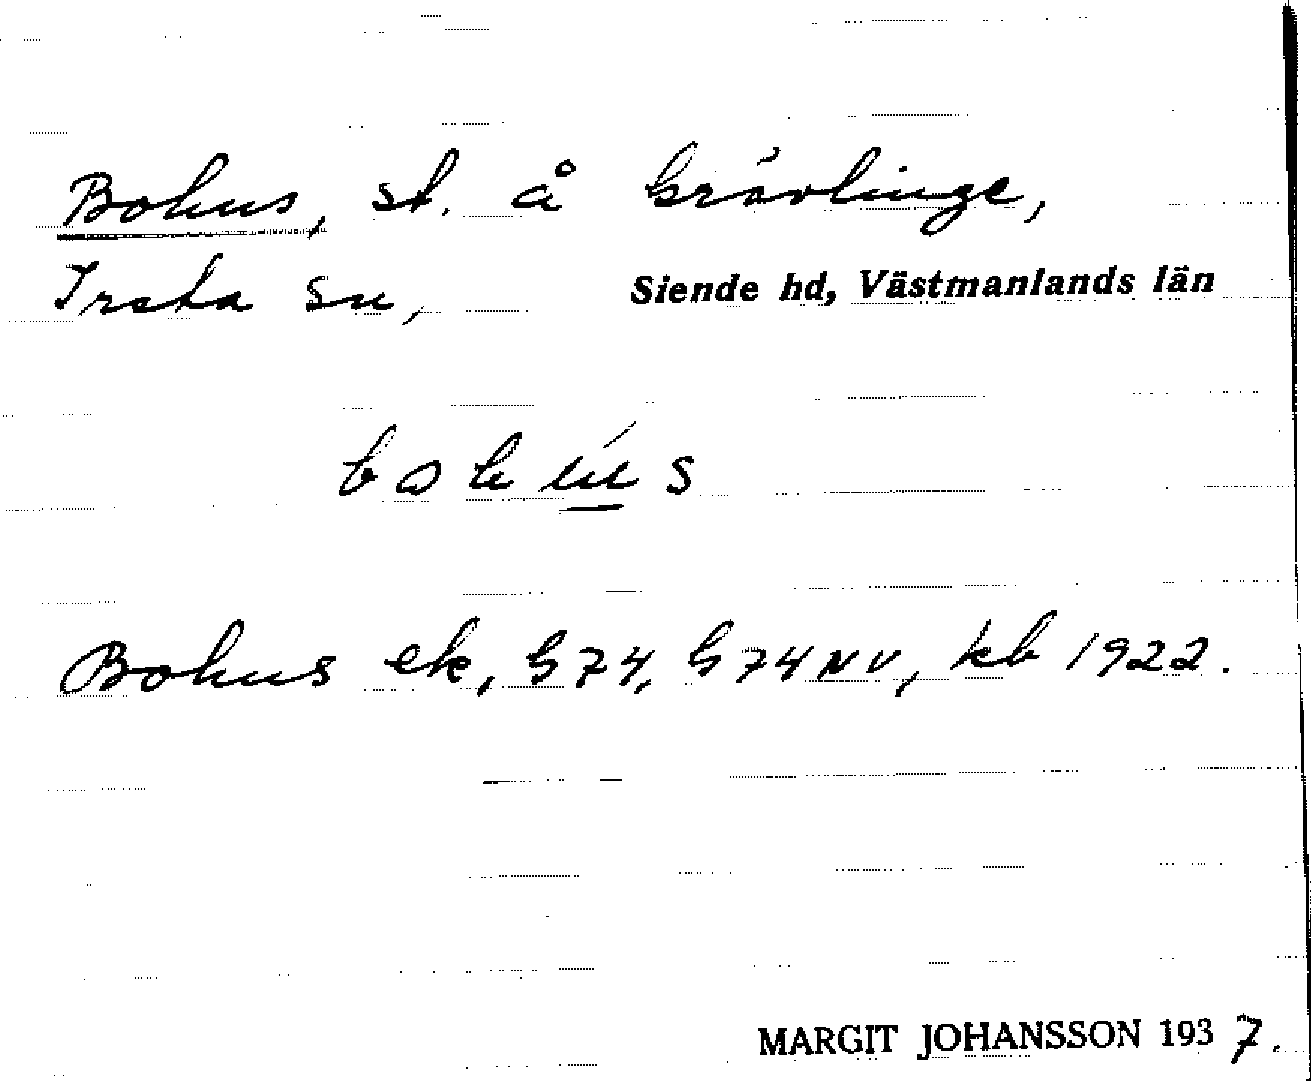 Bohus, st. å Grävlinge,
Irsta sn, Siende hd, Västmanlands län
bohús
Bohus ek, G74, G74NV, kb 1922.
MARGIT JOHANSSON 1937.